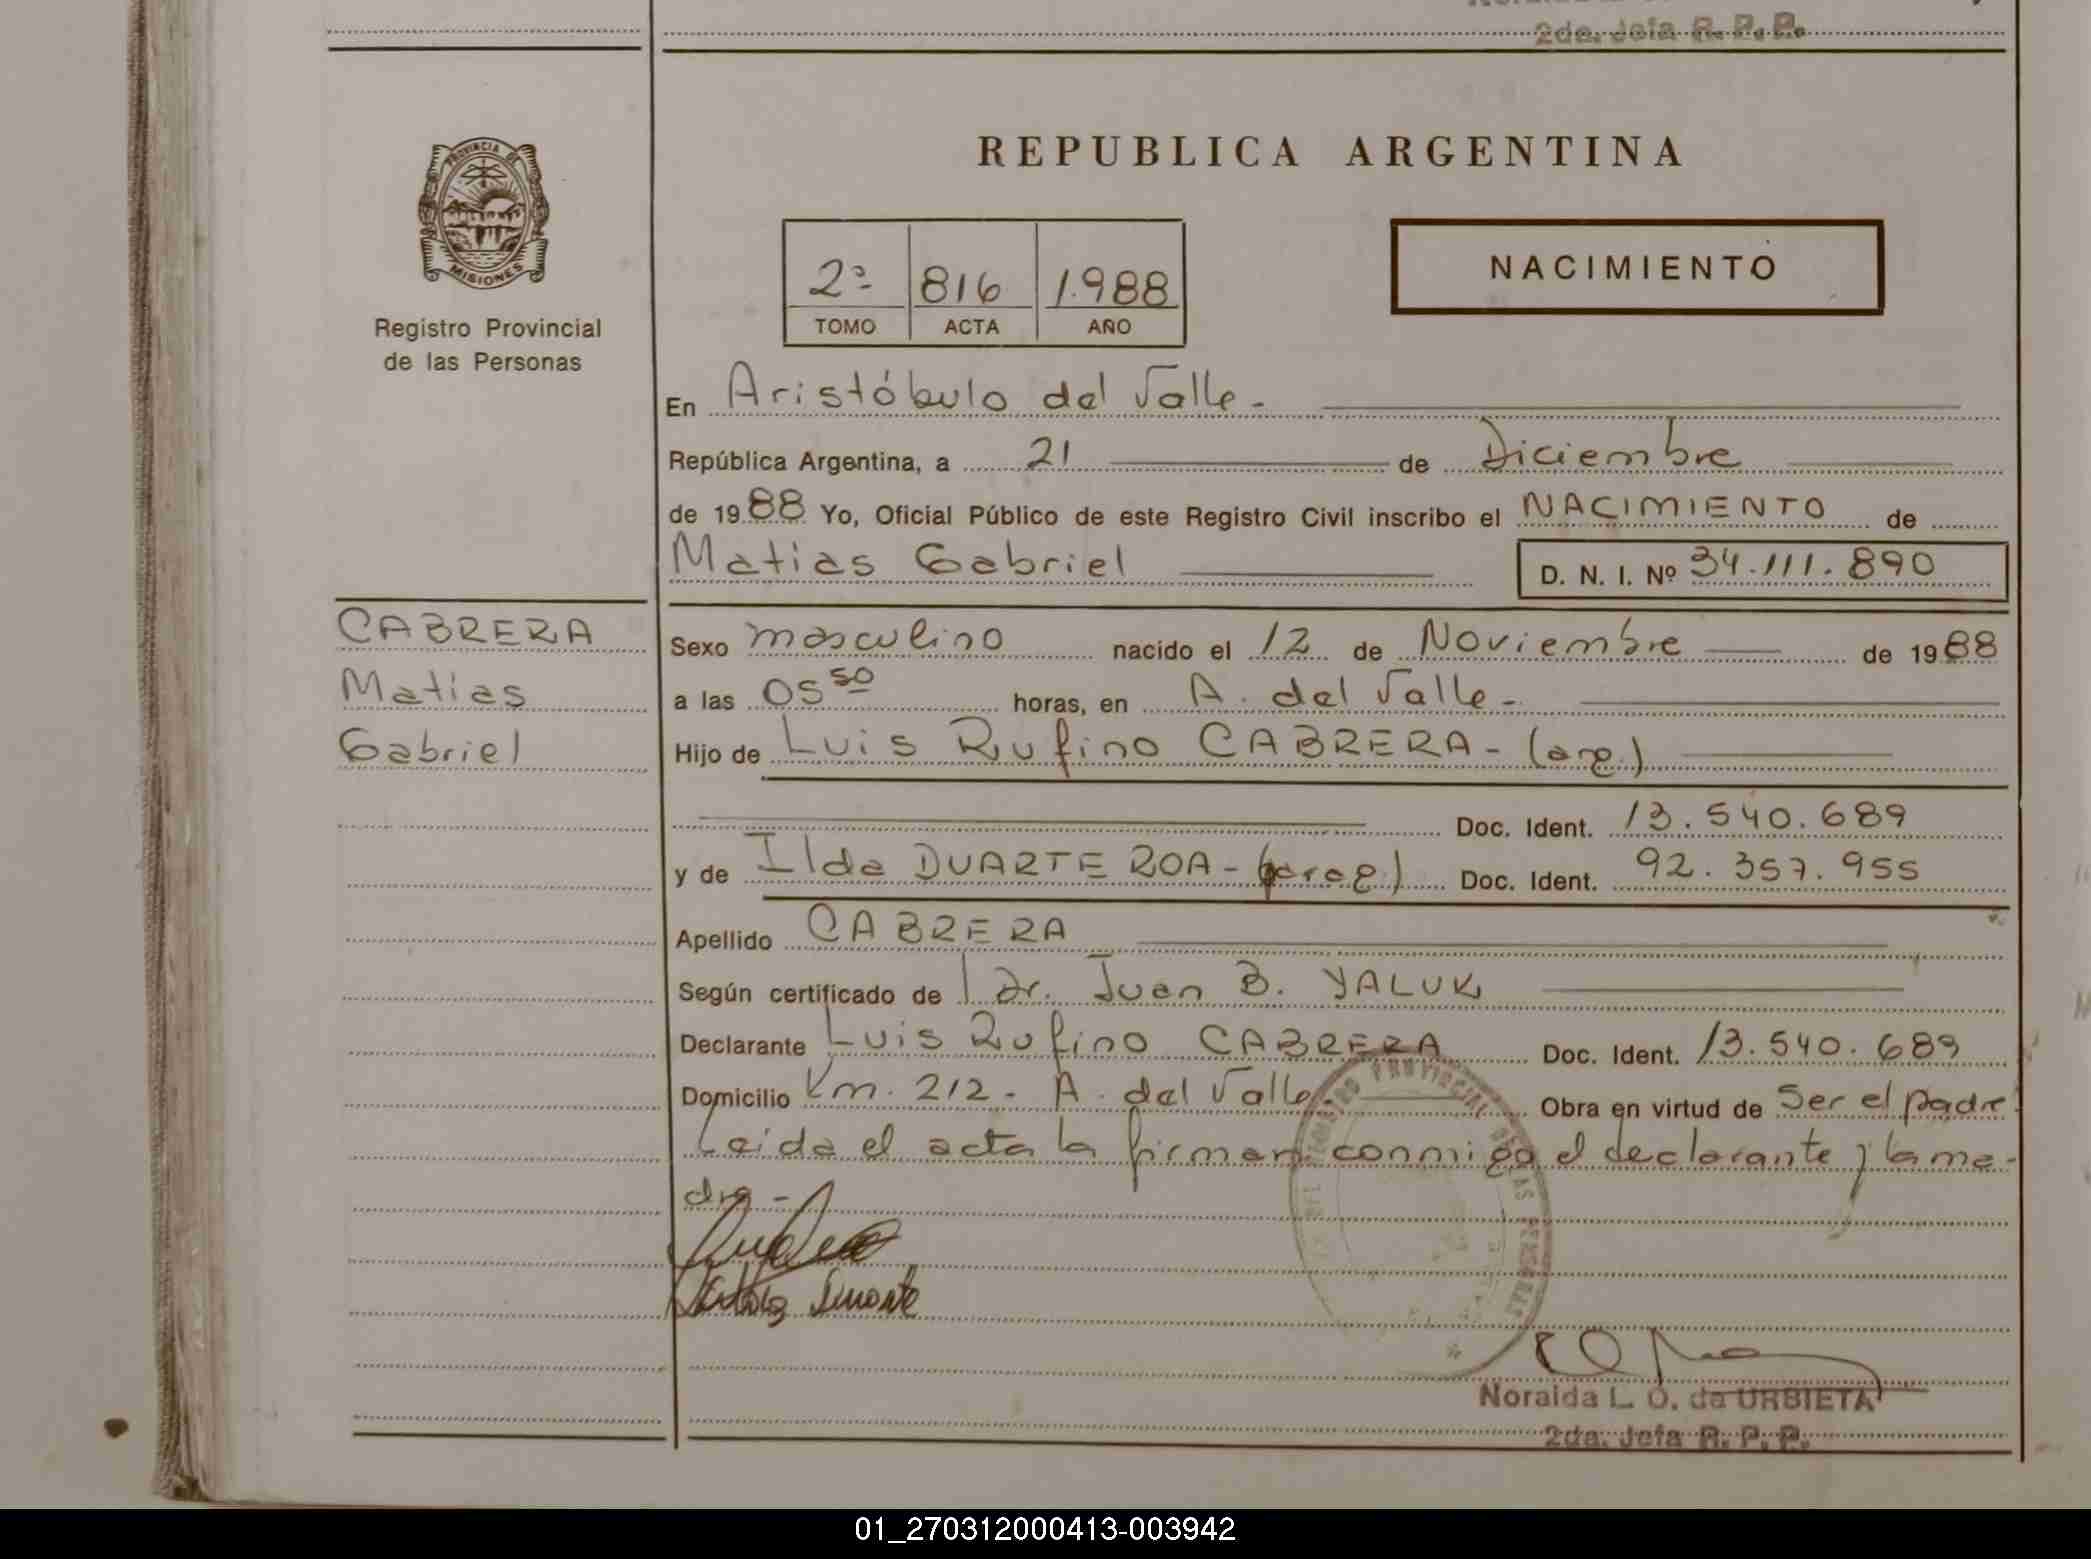 2da. Jefa R. P. P.
PROVINCIA DE
MISIONES
Registro Provincial
de las Personas
REPUBLICA ARGENTINA
2º 816 1.988
TOMO ACTA AÑO
NACIMIENTO
En Aristóbulo del Valle.-
República Argentina, a 21 de Diciembre
de 1988 Yo, Oficial Público de este Registro Civil inscribo el NACIMIENTO de
Matias Gabriel D. N. I. Nº 34.111.890
CABRERA
Matias
Gabriel
Sexo masculino nacido el 12 de Noviembre de 1988
a las 05 50 horas, en A. del Valle.-
Hijo de Luis Rufino CABRERA - (arg.)
Doc. Ident. 13.540.689
y de Ilda DUARTE ROA - (parag.) Doc. Ident. 92.357.955
Apellido CABRERA
Según certificado de Dr. Juan B. YALUK
Declarante Luis Rufino CABRERA Doc. Ident. 13.540.689
Domicilio Km. 212 - A. del Valle. Obra en virtud de Ser el padre
Leida el acta la firman conmigo el declarante y la ma-
dre -
REGISTRO PROVINCIAL DE LAS PERSONAS
Duarte
Noraida L. O. de URBIETA
2da. Jefa R. P. P.
01_270312000413-003942